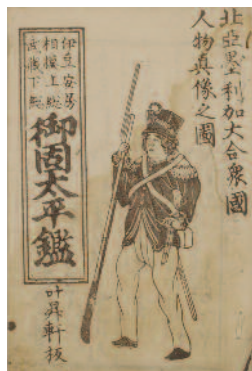 北亞墨利加大合衆國
人物真像之圖
伊豆安房
相模上総
武蔵下総
御固太平鑑
叶昇軒板